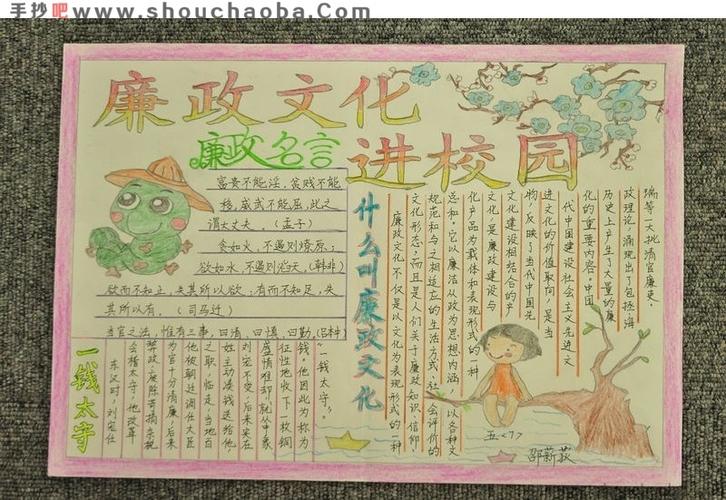 手抄吧 www.shouchaoba.com
廉政文化
进校园
廉政名言
富贵不能淫，贫贱不能
移，威武不能屈，此之
谓大丈夫。（孟子）
贪如火，不遏则燎原；
欲如水，不遏则滔天（韩非）
欲而不知止，失其所以欲；有而不知足，失
其所以有。（司马迁）
当官之法，惟有三事，曰清、曰慎、曰勤。（吕本中）
什么叫廉政文化
廉政文化不仅是以文化为表现形式的一种
文化形态，而且是人们关于廉政知识、信仰、
规范和与之相适应的生活方式、社会评价的
总和，它以廉洁从政为思想内涵，以各种文
化产品为载体和表现形式的一种
文化，是廉政建设与
文化建设相结合的产
物，反映了当代中国先
进文化的价值取向，是当
代中国建设社会主义先进文
化的重要内容。中国
历史上产生了大量的廉
政理论，涌现出了包括海
瑞等一大批清官廉吏。
一钱太守
东汉时，刘宠任
会稽太守，他改革
弊政，废除苛捐杂税
为官十分清廉，后来
他被朝廷调任大臣
之职，临走，当地百
姓主动凑钱送给他，
刘宠不受，后来实在
盛情难却，就从中象
征性地收下一枚铜
钱，他因此被称为
“一钱太守”。
五<7>
邵薪荻